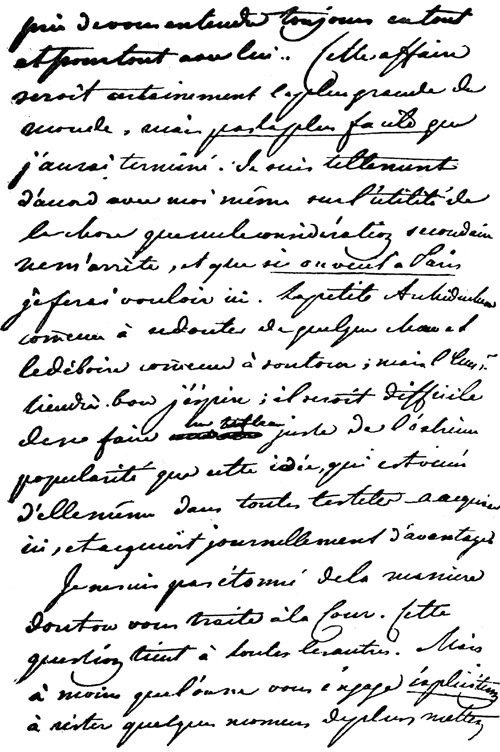 près de vous entendre toujours en tout
et pour tout avec lui. Cette affaire
seroit certainement la plus grande du
monde, mais pas la plus facile que
j'aurai terminé. Je suis tellement
d'accord avec moi même sur l'utilité de
la chose que nulle considération secondaire
ne m'arrête, et que si on veut à Paris
je ferai vouloir ici. La petite Archiduchesse
comence à redouter de quelque chose et
le déboire comence à son tour; mais l'Emp.
tiendra bon j'éspère; il seroit difficile
de se faire une idée juste de l'extrème
popularité que cette idée, qui est venue
d'elle même dans toutes les têtes a acquise
ici, et acquiert journellement d'avantage
Je ne suis pas étonné de la maniere
dont on vous traite à la Cour. Cette
question tient à toutes les autres. Mais
à moins que l'on ne vous engage
à rester quelques momens de plus mettez